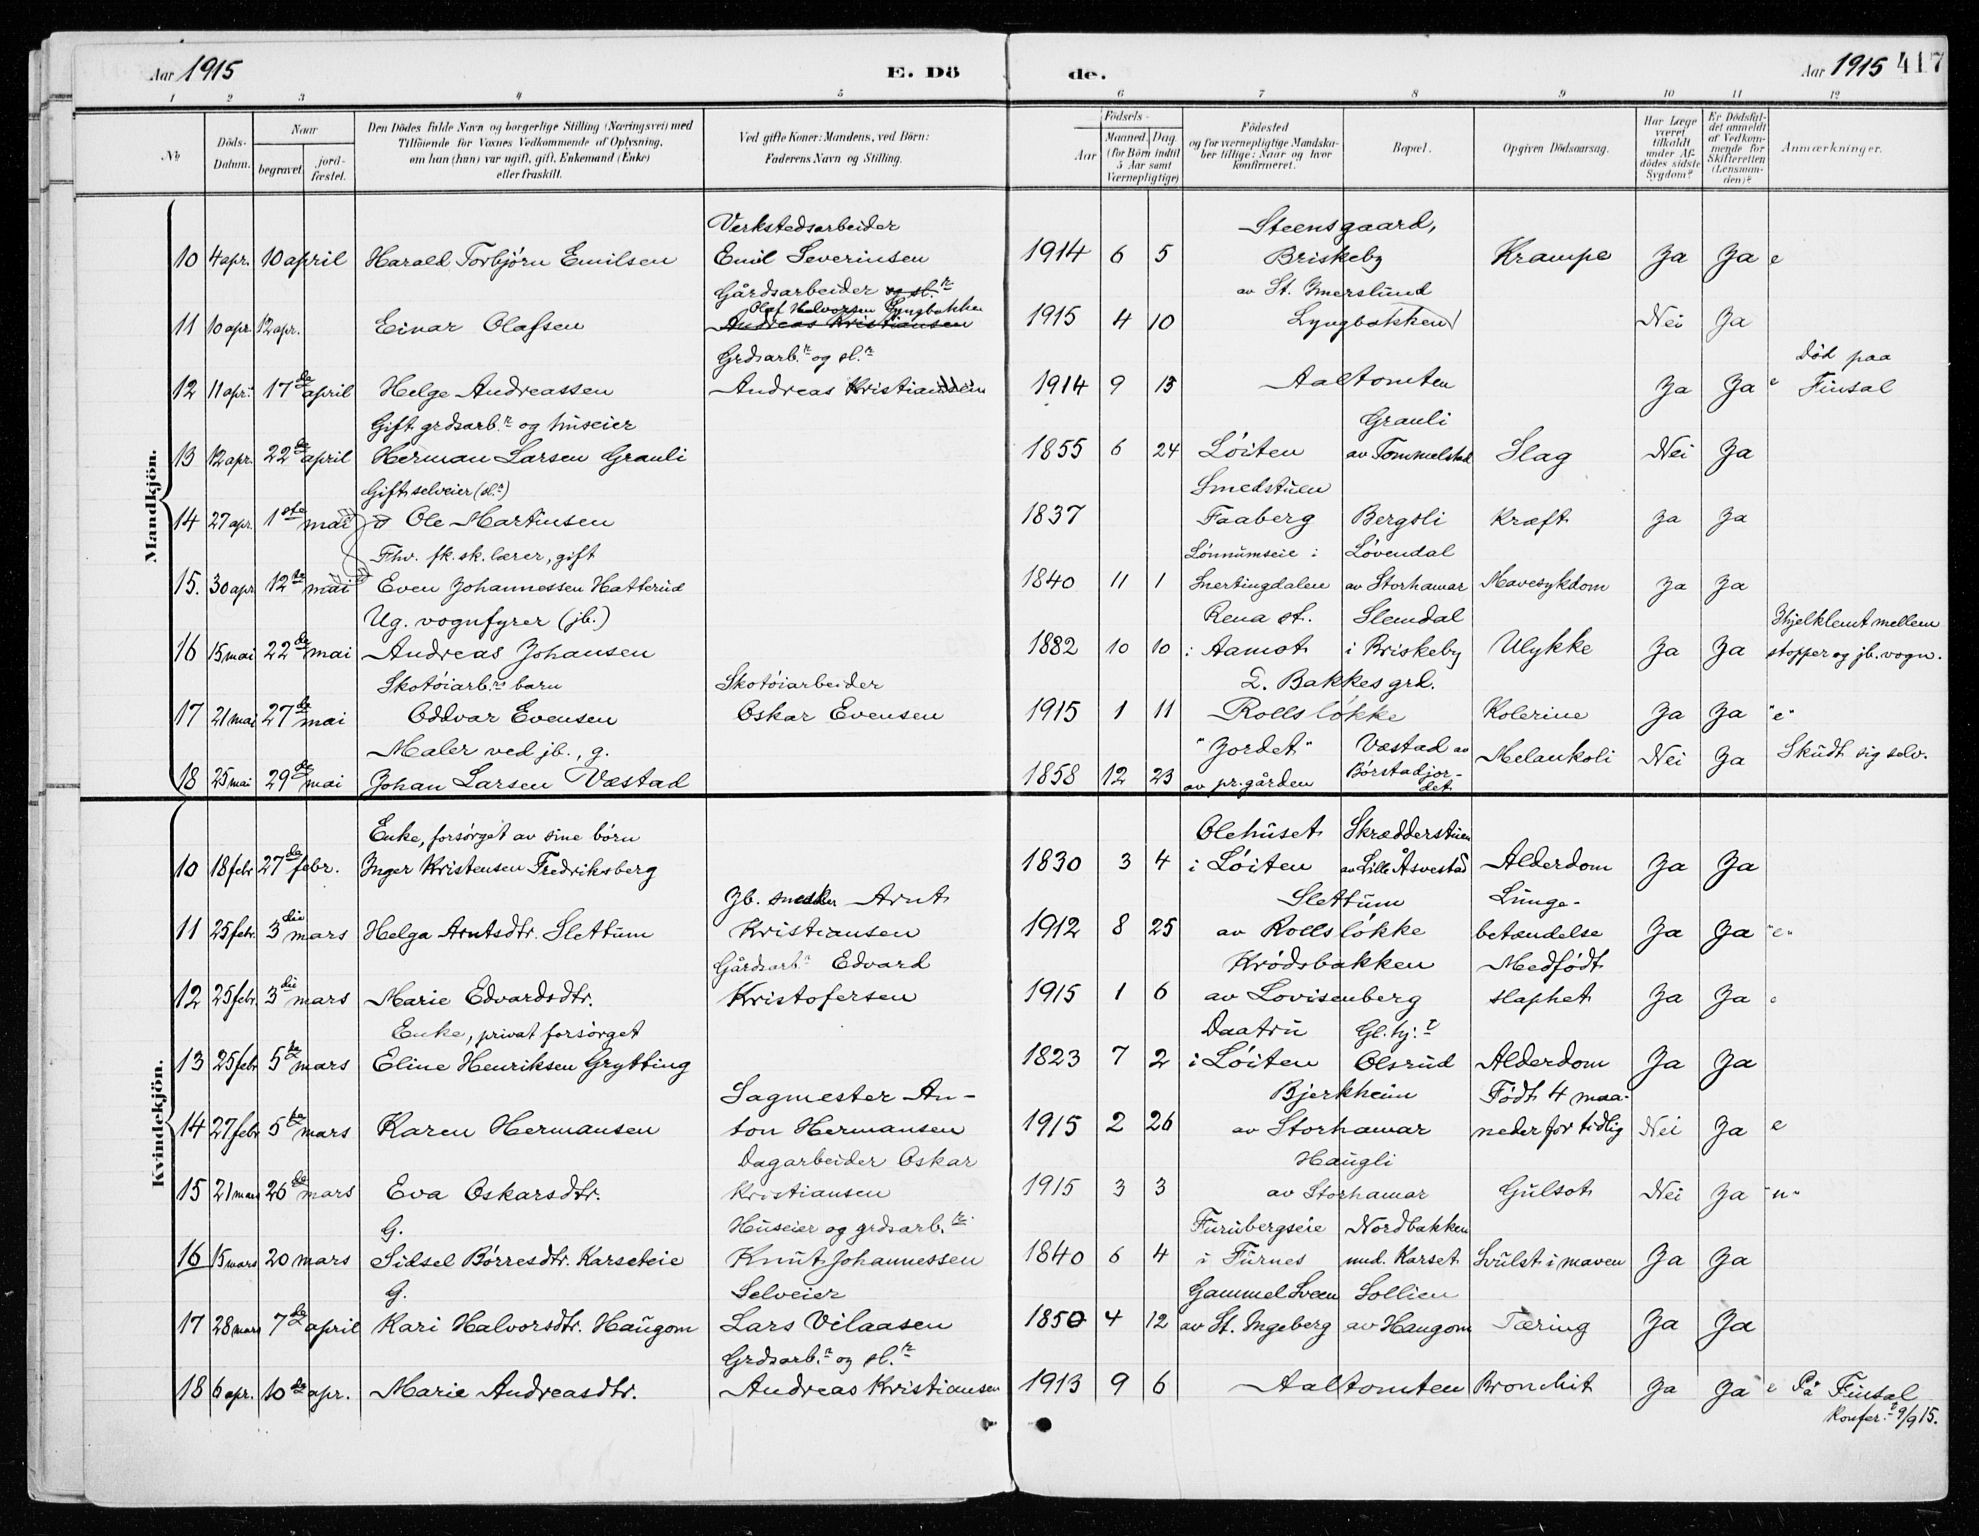 Aar 1915
E. Dö
de.
Aar 1915 417
1 2 3 4 5 6 7 8 9 10 11 12
No
Döds-Datum.
Naar
begravet.
jord-fæstet.
Den Dödes fulde Navn og borgerlige Stilling (Næringsvei) med
Tilföiende for Voxnes Vedkommende af Oplysning,
om han (hun) var ugift, gift, Enkemand (Enke)
eller fraskilt.
Ved gifte Koner: Mandens, ved Börn:
Faderens Navn og Stilling.
Födsels-
Aar
Maaned Dag
(for Börn indtil
5 Aar samt
Værnepligtige)
Födested
og for værnepligtige Mandska-
ber tillige: Naar og hvor
konfirmeret.
Bopæl.
Opgiven Dödsaarsag.
Har Læge
været
tilkaldt
under Af-
dödes sidste
Sygdom?
Er Dödsfal-
det anmeldt
af Vedkom-
mende for
Skifteretten
(Lensman-
den)?
Anmærkninger.
Mandkjön.
Verkstedsarbeider Steensgaard,
10 4 apr. 10 april Harald Torbjørn Emilsen Emil Severinsen 1914 6 5 Briskeby Krampe Ja Ja e
Gårdsarbeider og sl.r av St. Imerslund
Olaf Halvorsen Lyngbakken
11 10 apr. 12 apr. Einar Olafsen Andreas Kristiansen 1915 4 10 Lyngbakken Nei Ja
Grdsarb.r og sl.r Död paa
12 11 apr. 17de april Helge Andreassen Andreas Kristiansen 1914 9 13 Aaltomten Ja Ja e Finsal
Gift grdsarb.r og huseier Grauli
13 12 apr. 22de april Herman Larsen Grauli 1855 6 24 Löiten av Tommelstad Slag Nei Ja
Gift selveier (sl.r) Smedstuen
14 27 apr. 1ste mai Ole Martinsen 1837 Faaberg Bergsli Kræft Ja Ja
Fhv. fk. sk. lærer, gift Lönnumseie i Lövendal
15. 30 apr 12te mai Even Johannessen Hatterud 1840 11 1 Snertingdalen av Storhamar Mavesykdom Ja Ja
Ug. vognfyrer (jb.) Rena st. Slemdal Ihjelklemt mellem
16 15 mai 22de mai Andreas Johansen 1882 10 10 i Aamot i Briskeby Ulykke Ja Ja stopper og jb. vogn.
Skotöiarb.rs barn Skotöiarbeider L. Bakkes grd.
17 21 mai 27de mai Oddvar Evensen Oskar Evensen 1915 1 11 Rollsløkke Kolerine Ja Ja "e"
Maler ved jb., g. "Jordet" Væstad av Melankoli Nei Ja Skudt sig selv.
18 25 mai 29de mai Johan Larsen Væstad 1858 12 23 av pr.gården Börstadjor-
det
Kvindekjön.
Enke, forsörget av sine börn Olehuset Skrædderstuen
10 18 febr 27de febr. Inger Kristensen Fredriksberg 1830 3 4 i Löiten av Lille Åsvestad Alderdom Ja Ja
Jb. snedker Arnt Slettum Lunge-
11 25 febr. 3die mars Helga Arntsdtr. Slettum Kristiansen 1912 8 25 av Rollsløkke betændelse Ja Ja "e"
Gårdsarb.r Edvard Krödsbakken Medfødt
12 25 febr. 3die mars Marie Edvardsdtr. Kristofersen 1915 1 6 av Lovisenberg slaphet Ja Ja e
Enke, privat forsörget Daatru Gl. hj.t
13 25 febr 5te mars Eline Henriksen Grytting 1823 7 2 i Löiten Olsrud Alderdom Ja Ja
Sagmester An- Bjerkheim Födt 4 maa-
14 27 febr 5te mars Karen Hermansen ton Hermansen 1915 2 26 av Storhamar neder for tidlig Nei Ja e
Dagarbeider Oskar Haugli
15 21 mars 26de mars Eva Oskarsdtr. Kristiansen 1915 3 3 av Storhamar Gulsot Nei Ja "u"
G. Huseier og grdsarb.r Furubergseie Nordbakken
16 15 mars 20 mars Sidsel Börresdtr. Karseteie Knut Johannessen 1840 6 4 i Furnes und. Karset Svulst i maven Ja Ja
G. Selveier Gammel Sveen Sollien
17 28 mars 7de april Kari Halvorsdtr. Haugom Lars Vilaasen 1850 4 12 av St. Ingeberg av Haugom Tæring Ja Ja
Grdsarb.r og sl.r
18 6 apr. 10de apr. Marie Andreasdtr. Andreas Kristiansen 1913 9 6 Aaltomten Bronchit Ja Ja e På Finsal
Konfer.t 9/9 15.